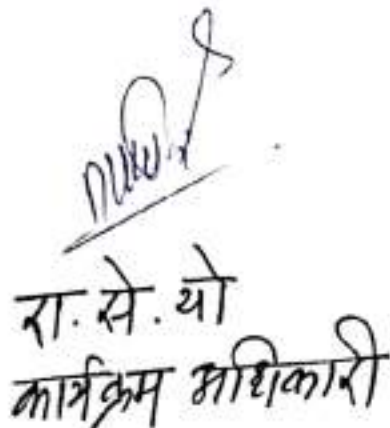 रा. से. यो
कार्यक्रम अधिकारी